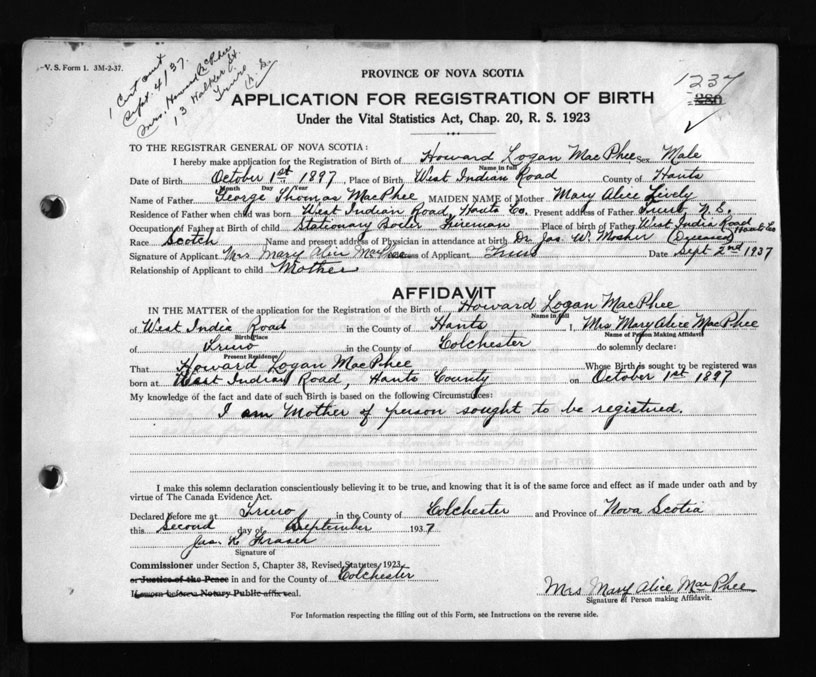 V. S. Form 1. 3M-2-37.
1 Cert sent
Sept. 4/37.
Mrs. Howard McPhee
13 Walker St.
Truro
N. S.
1237
280
PROVINCE OF NOVA SCOTIA
APPLICATION FOR REGISTRATION OF BIRTH
Under the Vital Statistics Act, Chap. 20, R. S. 1923
TO THE REGISTRAR GENERAL OF NOVA SCOTIA:
I hereby make application for the Registration of Birth of Howard Logan MacPhee Sex Male
Name in full
Date of Birth October 1st 1897 Place of Birth West Indian Road County of Hants
Month Day Year
Name of Father George Thomas MacPhee MAIDEN NAME of Mother Mary Alice Lively
Residence of Father when child was born West Indian Road, Hants Co. Present address of Father Truro N. S.
Occupation of Father at Birth of child Stationary Boiler Fireman Place of birth of Father West India Road Hants Co
Race Scotch Name and present address of Physician in attendance at birth Dr Jas. W. Mosher (Deceased)
Signature of Applicant Mrs Mary Alice McPhee Address of Applicant Truro Date Sept 2nd 1937
Relationship of Applicant to child Mother
AFFIDAVIT
IN THE MATTER of the application for the Registration of Birth of Howard Logan MacPhee
Name in full
of West India Road in the County of Hants I, Mrs Mary Alice MacPhee
Birthplace Name of Person Making Affidavit
of Truro in the County of Colchester do solemnly declare:
Present Residence
That Howard Logan MacPhee Whose Birth is sought to be registered was
born at West Indian Road, Hants County on October 1st 1897
My knowledge of the fact and date of such Birth is based on the following Circumstances:
I am Mother of person sought to be registured.
I make this solemn declaration conscientiously believing it to be true, and knowing that it is of the same force and effect as if made under oath and by
virtue of The Canada Evidence Act.
Declared before me at Truro in the County of Colchester and Province of Nova Scotia
this Second day of September 1937
Jas. K. Fraser
Signature of
Commissioner under Section 5, Chapter 38, Revised Statutes 1923
or Justice of the Peace in and for the County of Colchester
If sworn before a Notary Public affix seal.
Mrs Mary Alice MacPhee
Signature of Person making Affidavit.
For Information respecting the filling out of this Form, see Instructions on the reverse side.